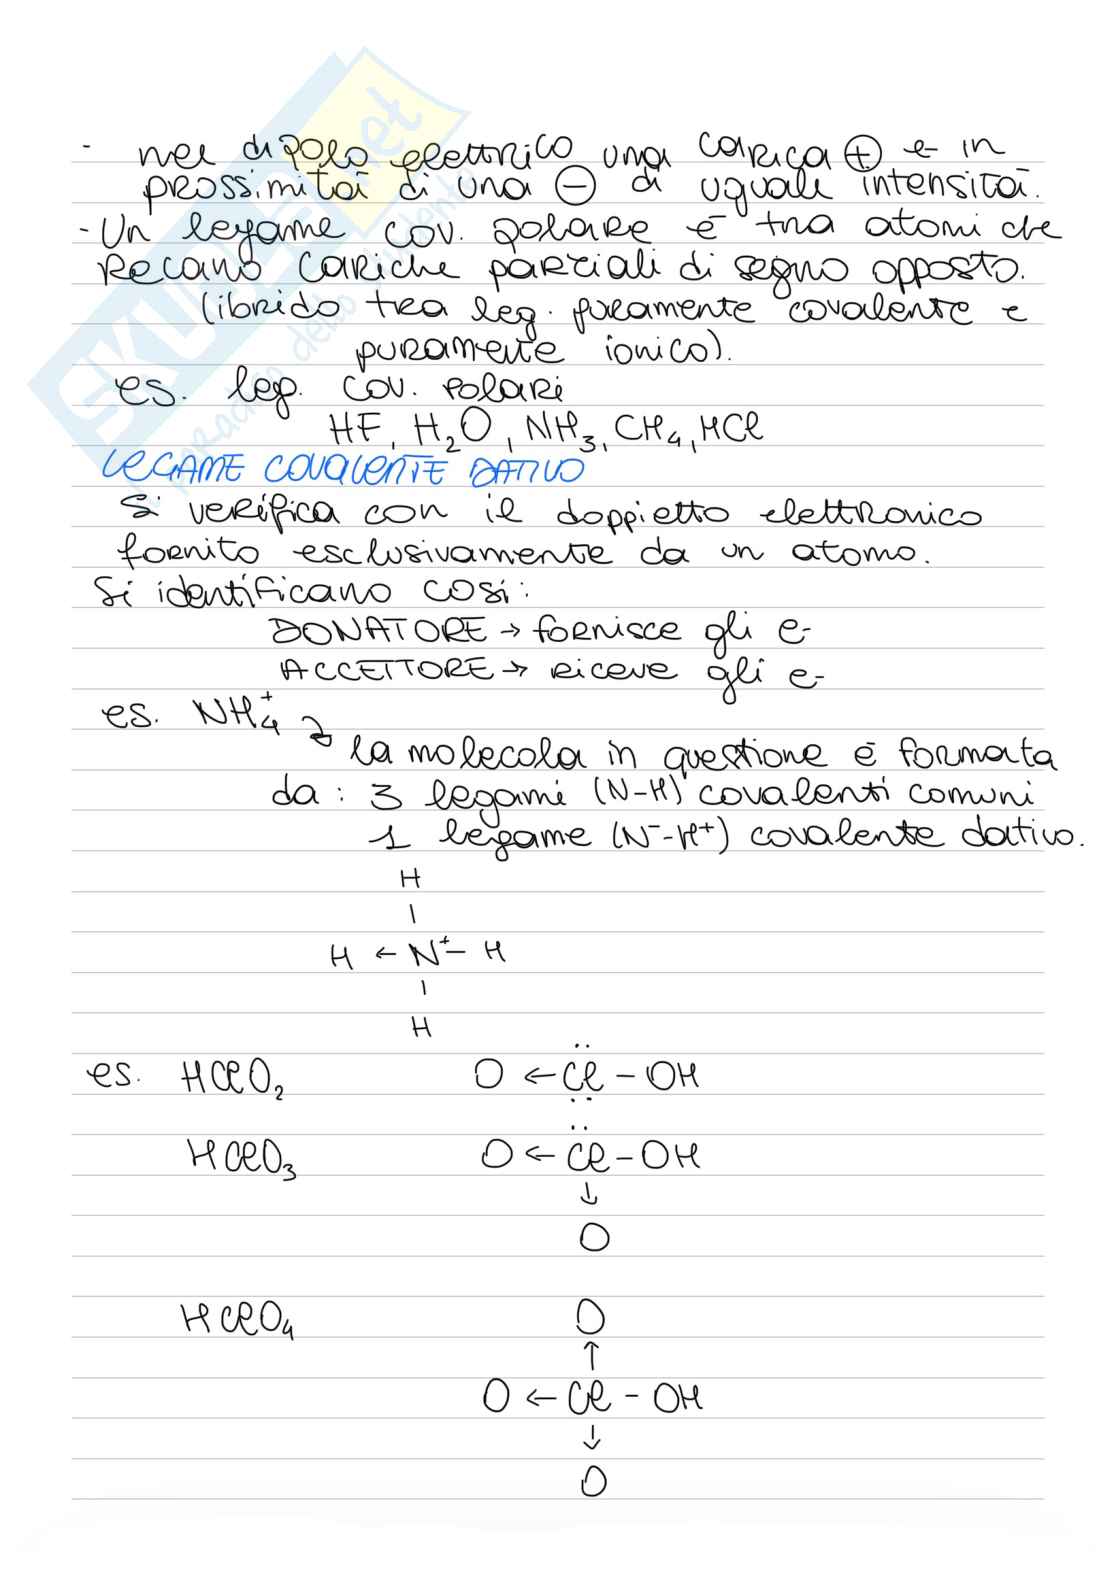 - nel dipolo elettrico una carica ⊕ e in
prossimità di una ⊖ di uguale intensità.
- Un legame cov. polare è tra atomi che
recano cariche parziali di segno opposto.
(ibrido tra leg. puramente covalente e
puramente ionico).
es. leg. cov. polari
HF, H₂O, NH₃, CH₄, HCl
LEGAME COVALENTE DATIVO
Si verifica con il doppietto elettronico
fornito esclusivamente da un atomo.
Si identificano così:
DONATORE → fornisce gli e-
ACCETTORE → riceve gli e-
es. NH₄⁺
la molecola in questione è formata
da: 3 legami (N-H) covalenti comuni
1 legame (N⁻-H⁺) covalente dativo.
H
|
H ← N⁺ – H
|
H
es. HClO₂ O ← Cl – OH
HClO₃ O ← Cl – OH
↓
O
HClO₄ O
↑
O ← Cl – OH
↓
O
SKUOLA.net
Il paradiso dello studente